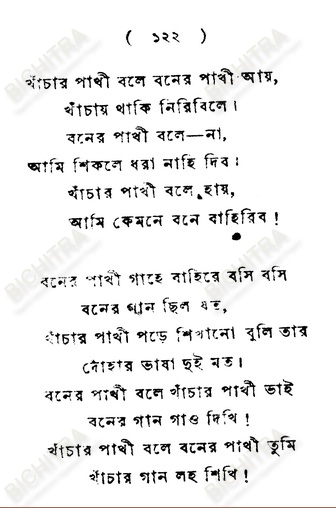 ( ১২২ )
খাঁচার পাখী বলে বনের পাখী আয়,
খাঁচায় থাকি নিরিবিলে।
বনের পাখী বলে—না,
আমি শিকলে ধরা নাহি দিব।
খাঁচার পাখী বলে হায়,
আমি কেমনে বনে বাহিরিব!
বনের পাখী গাহে বাহিরে বসি বসি
বনের গান ছিল যত,
খাঁচার পাখী পড়ে শিখানো বুলি তার
দোঁহার ভাষা দুই মত।
বনের পাখী বলে খাঁচার পাখী ভাই
বনের গান গাও দিখি!
খাঁচার পাখী বলে বনের পাখী তুমি
খাঁচার গান লহ শিখি!
BICHITRA
BICHITRA
BICHITRA
BICHITRA
BICHITRA
BICHITRA